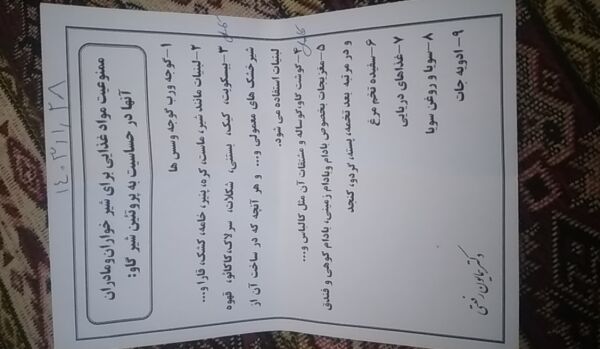 ۱۴۰۳/۱/۲۸
ممنوعیت مواد غذایی برای شیر خواران ومادران
آنها در حساسیت به پروتئین شیر گاو:
۱-گوجه ورب گوجه وسس ها
۲-لبنیات مانند شیر، ماست، کره، پنیر، خامه، کشک، قارا و...
۳-بیسکویت، کیک، بستنی، شکلات، سرلاک، کاکائو، قهوه
شیرخشک های معمولی و... و هر آنچه که در ساخت آن از
لبنیات استفاده می شود.
۴-گوشت گاو، گوساله و مشتقات آن مثل کالباس و...
۵-مغزیجات بخصوص بادام وبادام زمینی، بادام کوهی و فندق
و در مرتبه بعد تخمه، پسته، گردو، کنجد
۶-سفیده تخم مرغ
۷-غذاهای دریایی
۸-سویا و روغن سویا
۹-ادویه جات
دکتر همایون